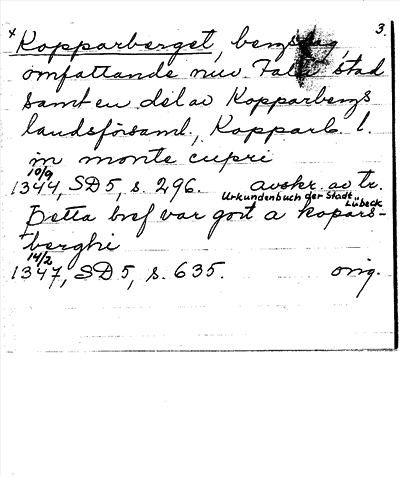 3.
x Kopparberget, bergslag,
omfattande nuv. Falu stad
samt en del av Kopparbergs
landsförsaml., Kopparb. l.
in monte cupri
10/9
1344, SD 5, s. 296. avskr. av tr.
Urkundenbuch der Stadt
Lübeck
Detta bref var gort a kopars-
berghi
14/2
1347, SD 5, s. 635. orig.